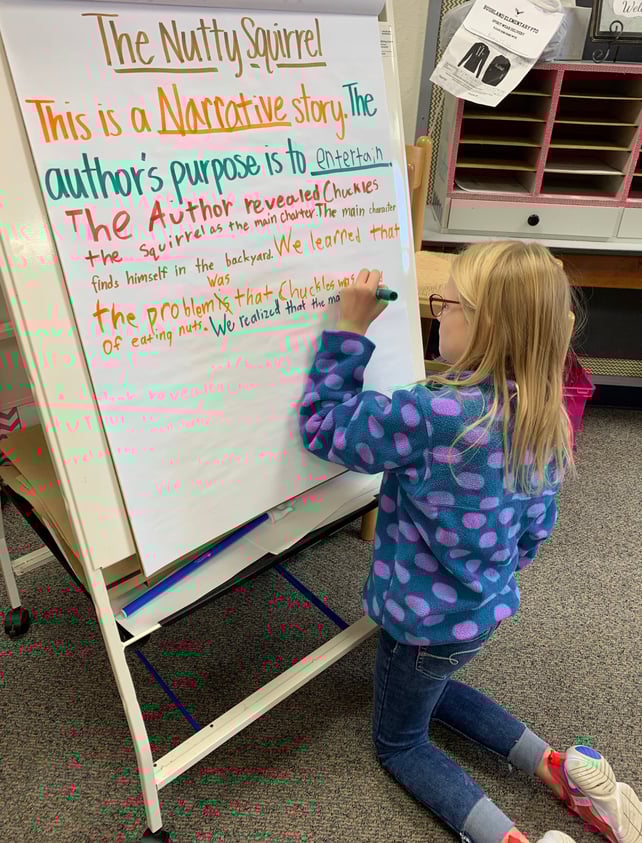 The Nutty Squirrel
This is a Narrative story. The
author's purpose is to entertain
The Author revealed Chuckles
the squirrel as the main charter. The main character
finds himself in the backyard. We learned that
was
the problem is that Chuckles was
of eating nuts. We realized that the